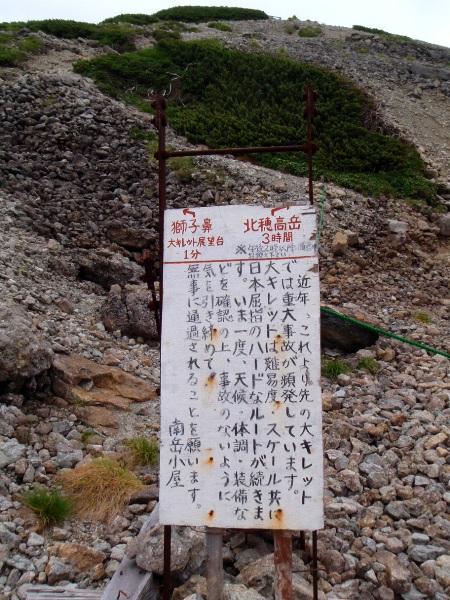 獅子鼻
大キレット展望台
1分
北穂高岳
3時間
近年、これより先の大キレット
では重大事故が頻発しています。
大キレットは難易度・スケール共に
日本屈指のハードなルートが続きま
す。いま一度、天候・体調・装備な
どを確認の上、事故のないように
気を引き締めて
無事に通過されることを願います。
南岳小屋